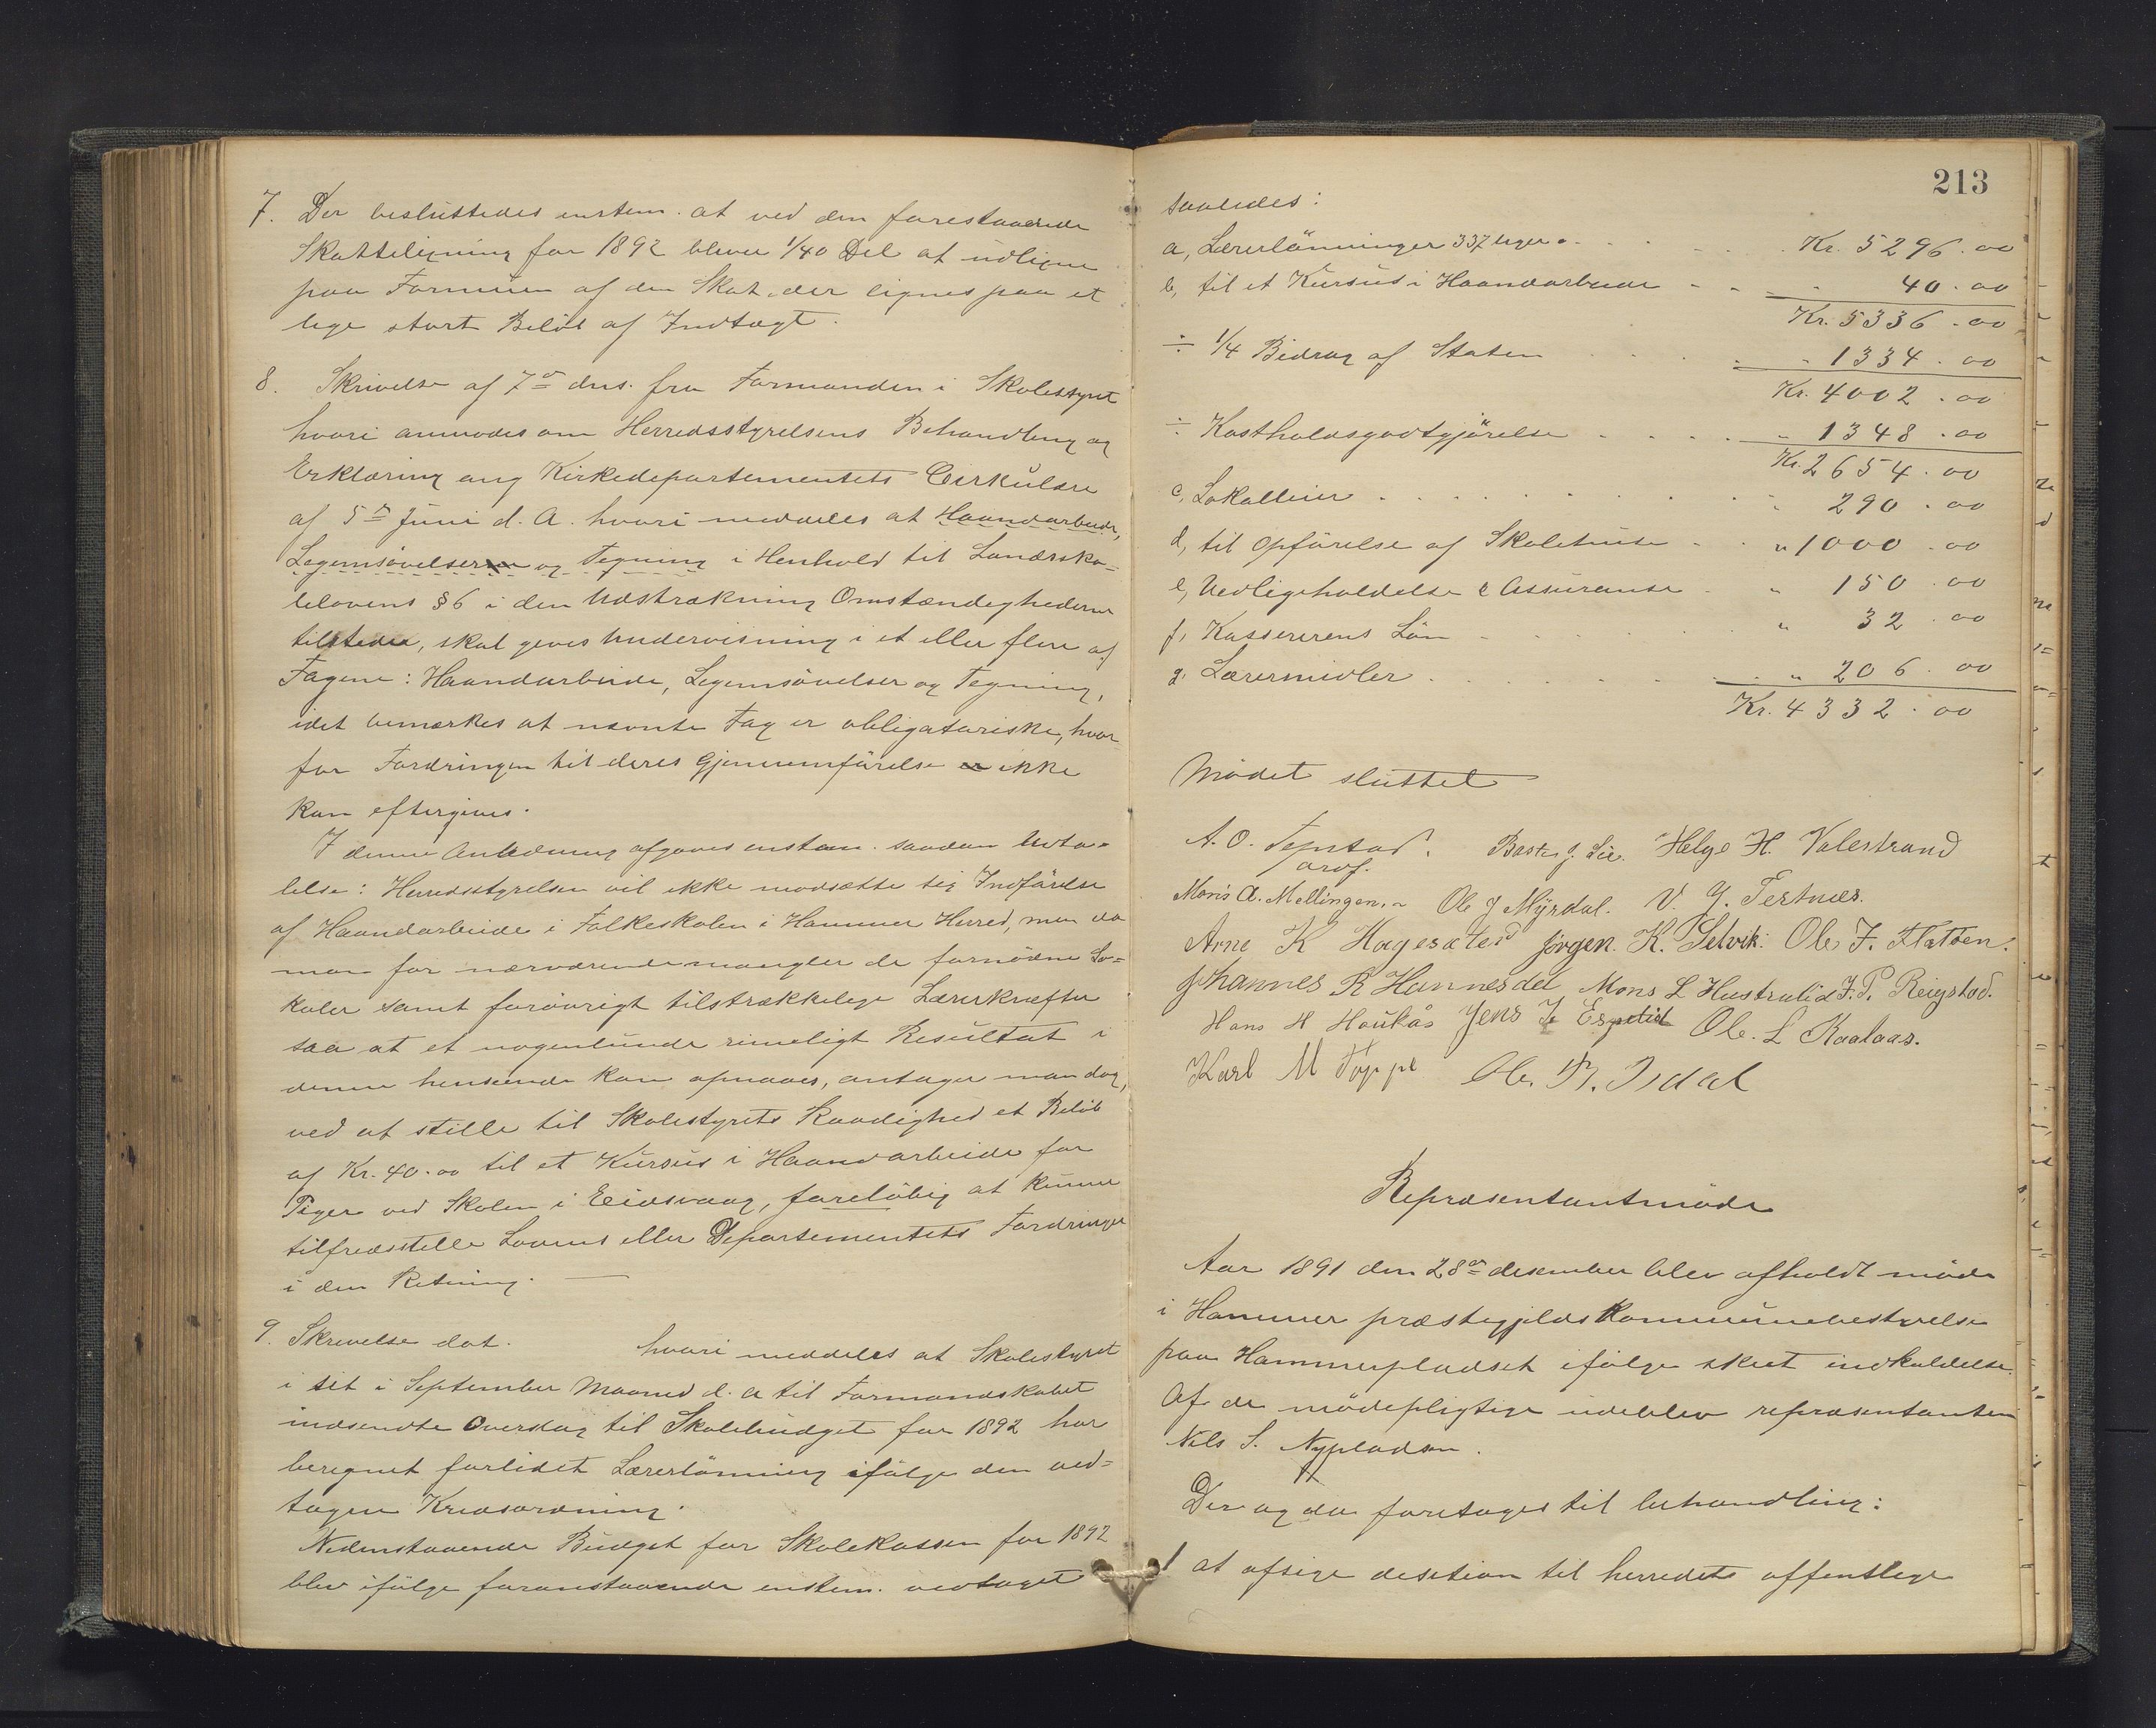 7. Der besluttedes enstem. at ved den forestaaende
Skatteligning for 1892 bliver 1/40 Del at udligne
paa Formuen af den Skat, der lignes paa et
lige stort Beløb af Indtægt.
8. Skrivelse af 7de dns. fra Formanden i Skolestyret
hvori anmodes om Herredsstyrelsens Behandling og
Erklæring ang Kirkedepartementets Cirkulære
af 5te Juni d. A. hvori meddeles at Haandarbeide,
Legemsøvelser og Tegning i Henhold til Landssko=
lelovens §6 i den Udstrækning Omstændighederne
tilsteder, skal gives Undervisning i et eller flere af
Fagene: Haandarbeide, Legemsøvelser og Tegning,
idet bemærkes at nævnte Fag er obligatoriske, hvor
for Fordringen til deres Gjennemførelse ikke
kan eftergives.
I denne Anledning afgaves enstem. saadan Udta=
lelse: Herredsstyrelsen vil ikke modsætte sig Indførelse
af Haandarbeide i Folkeskolen i Hammer Herred, men da
man for nærværende mangler de fornødne Lo=
kaler samt forøvrigt tilstrækkelige Lærerkræfter
saa at et nogenlunde rimeligt Resultat i
denne henseende kan opnaaes, antager man dog,
ved at stille til Skolestyrets Raadighed et Beløb
af Kr. 40.00 til et Kursus i Haandarbeide for
Piger ved Skolen i Eidsvaag, foreløbig at kunne
tilfredsstille Lovens eller Departementets Fordringer
i den Retning.
9. Skrivelse dat. hvori meddeles at Skolestyret
i sit i September Maaned d. A til Formandskabet
indsendte Overslag til Skolebudget for 1892 har
beregnet forlidet Lærerlønning ifølge den ved=
tagne Kredsordning.
Nedenstaaende Budget for Skolekassen for 1892
blev ifølge foranstaaende enstem. vedtaget
213
saaledes:
a, Lærerlønninger 337 uger Kr. 5296.00
b, til et Kursus i Haandarbeide 40.00
Kr. 5336.00
÷ 1/4 Bidrag af Staten " 1334.00
Kr. 4002.00
÷ Kostholdsgodtgjørelse " 1348.00
Kr. 2654.00
c, Lokalleier " 290.00
d, til Opførelse af Skolehuse " 1000.00
e, Vedligeholdelse & Assuranse " 150.00
f, Kassererens Løn " 32.00
g, Læremidler " 206.00
Kr. 4332.00
Mødet sluttet
A. O. Tepstad. Baste J. Lie. Helge H. Valestrand
Mons A. Mellingen. Ole J Myrdal. V. J. Tertnæs.
Arne K Hagesæter Jørgen. K. Selvik. Ole J. Flatøen.
Johannes R Hannesdal Mons L Hustrulid J. P. Reigstad.
Hans H Haukås Jens J Espelid Ole. L Kaalaas.
Karl M Toppe Ole. Isdal
Repræsentantmøde
Aar 1891 den 28de desember blev afholdt møde
i Hammer præstegjelds Kommunebestyrelse
paa Hammerpladset ifølge skeet indkaldelse.
Af de mødepligtige udeblev repræsentanten
Nils S. Nypladsen.
Der og da foretoges til behandling:
1 at afsige desition til herredets offentlige